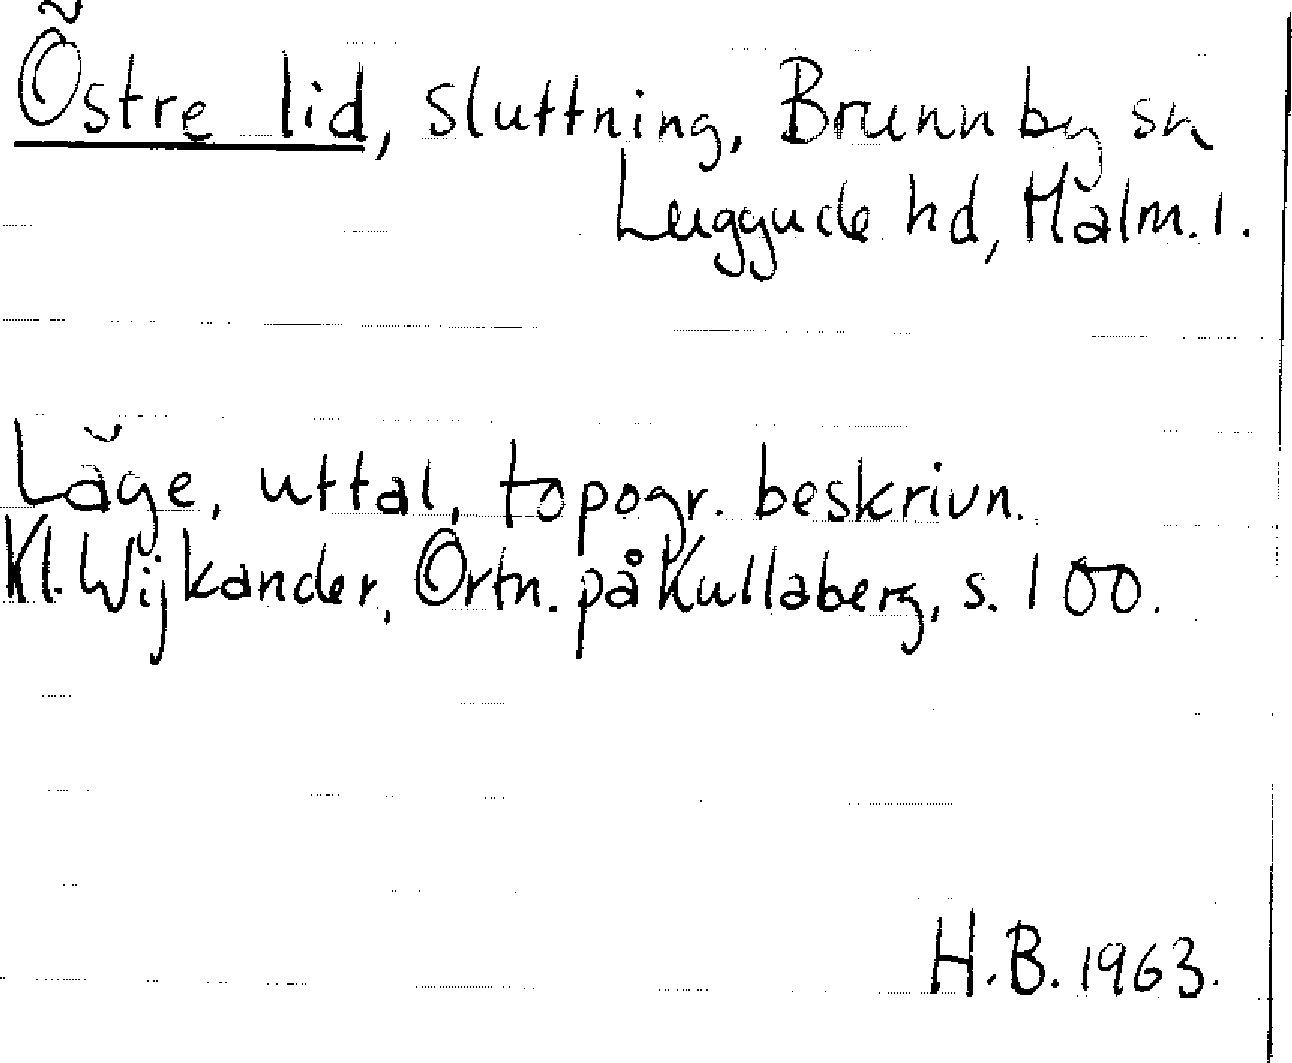 Östre lid, sluttning, Brunnby sn
Luggude hd, Malm. l.
Läge, uttal, topogr. beskrivn.
Kl. Wijkander, Ortn. på Kullaberg, s. 100.
H.B. 1963.